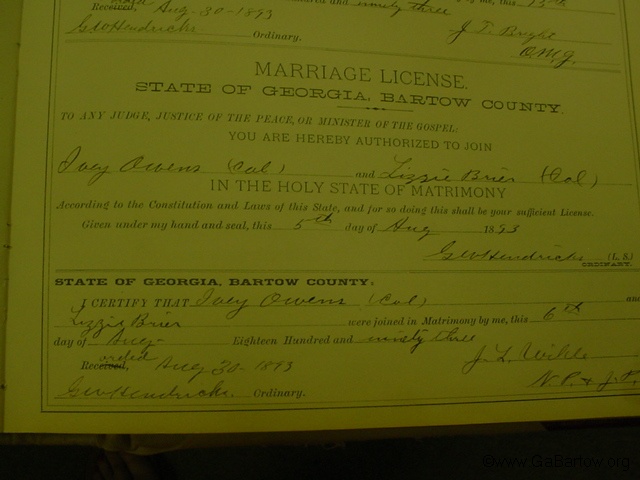 and ninety three
Received, Aug 30-1893
GW Hendricks Ordinary. J. T. Bright
MARRIAGE LICENSE.
STATE OF GEORGIA, BARTOW COUNTY.
TO ANY JUDGE, JUSTICE OF THE PEACE, OR MINISTER OF THE GOSPEL:
YOU ARE HEREBY AUTHORIZED TO JOIN
Ivey Owens (Col) and Lizzie Brier (Col)
IN THE HOLY STATE OF MATRIMONY
According to the Constitution and Laws of this State, and for so doing this shall be your sufficient License.
Given under my hand and seal, this 5th day of Aug 1893
GW Hendricks (L. S.)
ORDINARY.
STATE OF GEORGIA, BARTOW COUNTY:
I CERTIFY THAT Ivey Owens (Col) and
Lizzie Brier were joined in Matrimony by me, this 6th
day of Aug- Eighteen Hundred and ninety three
Received, Aug 30-1893 J. L.
GW Hendricks. Ordinary. N.P. & J.P.
©www.GaBartow.org